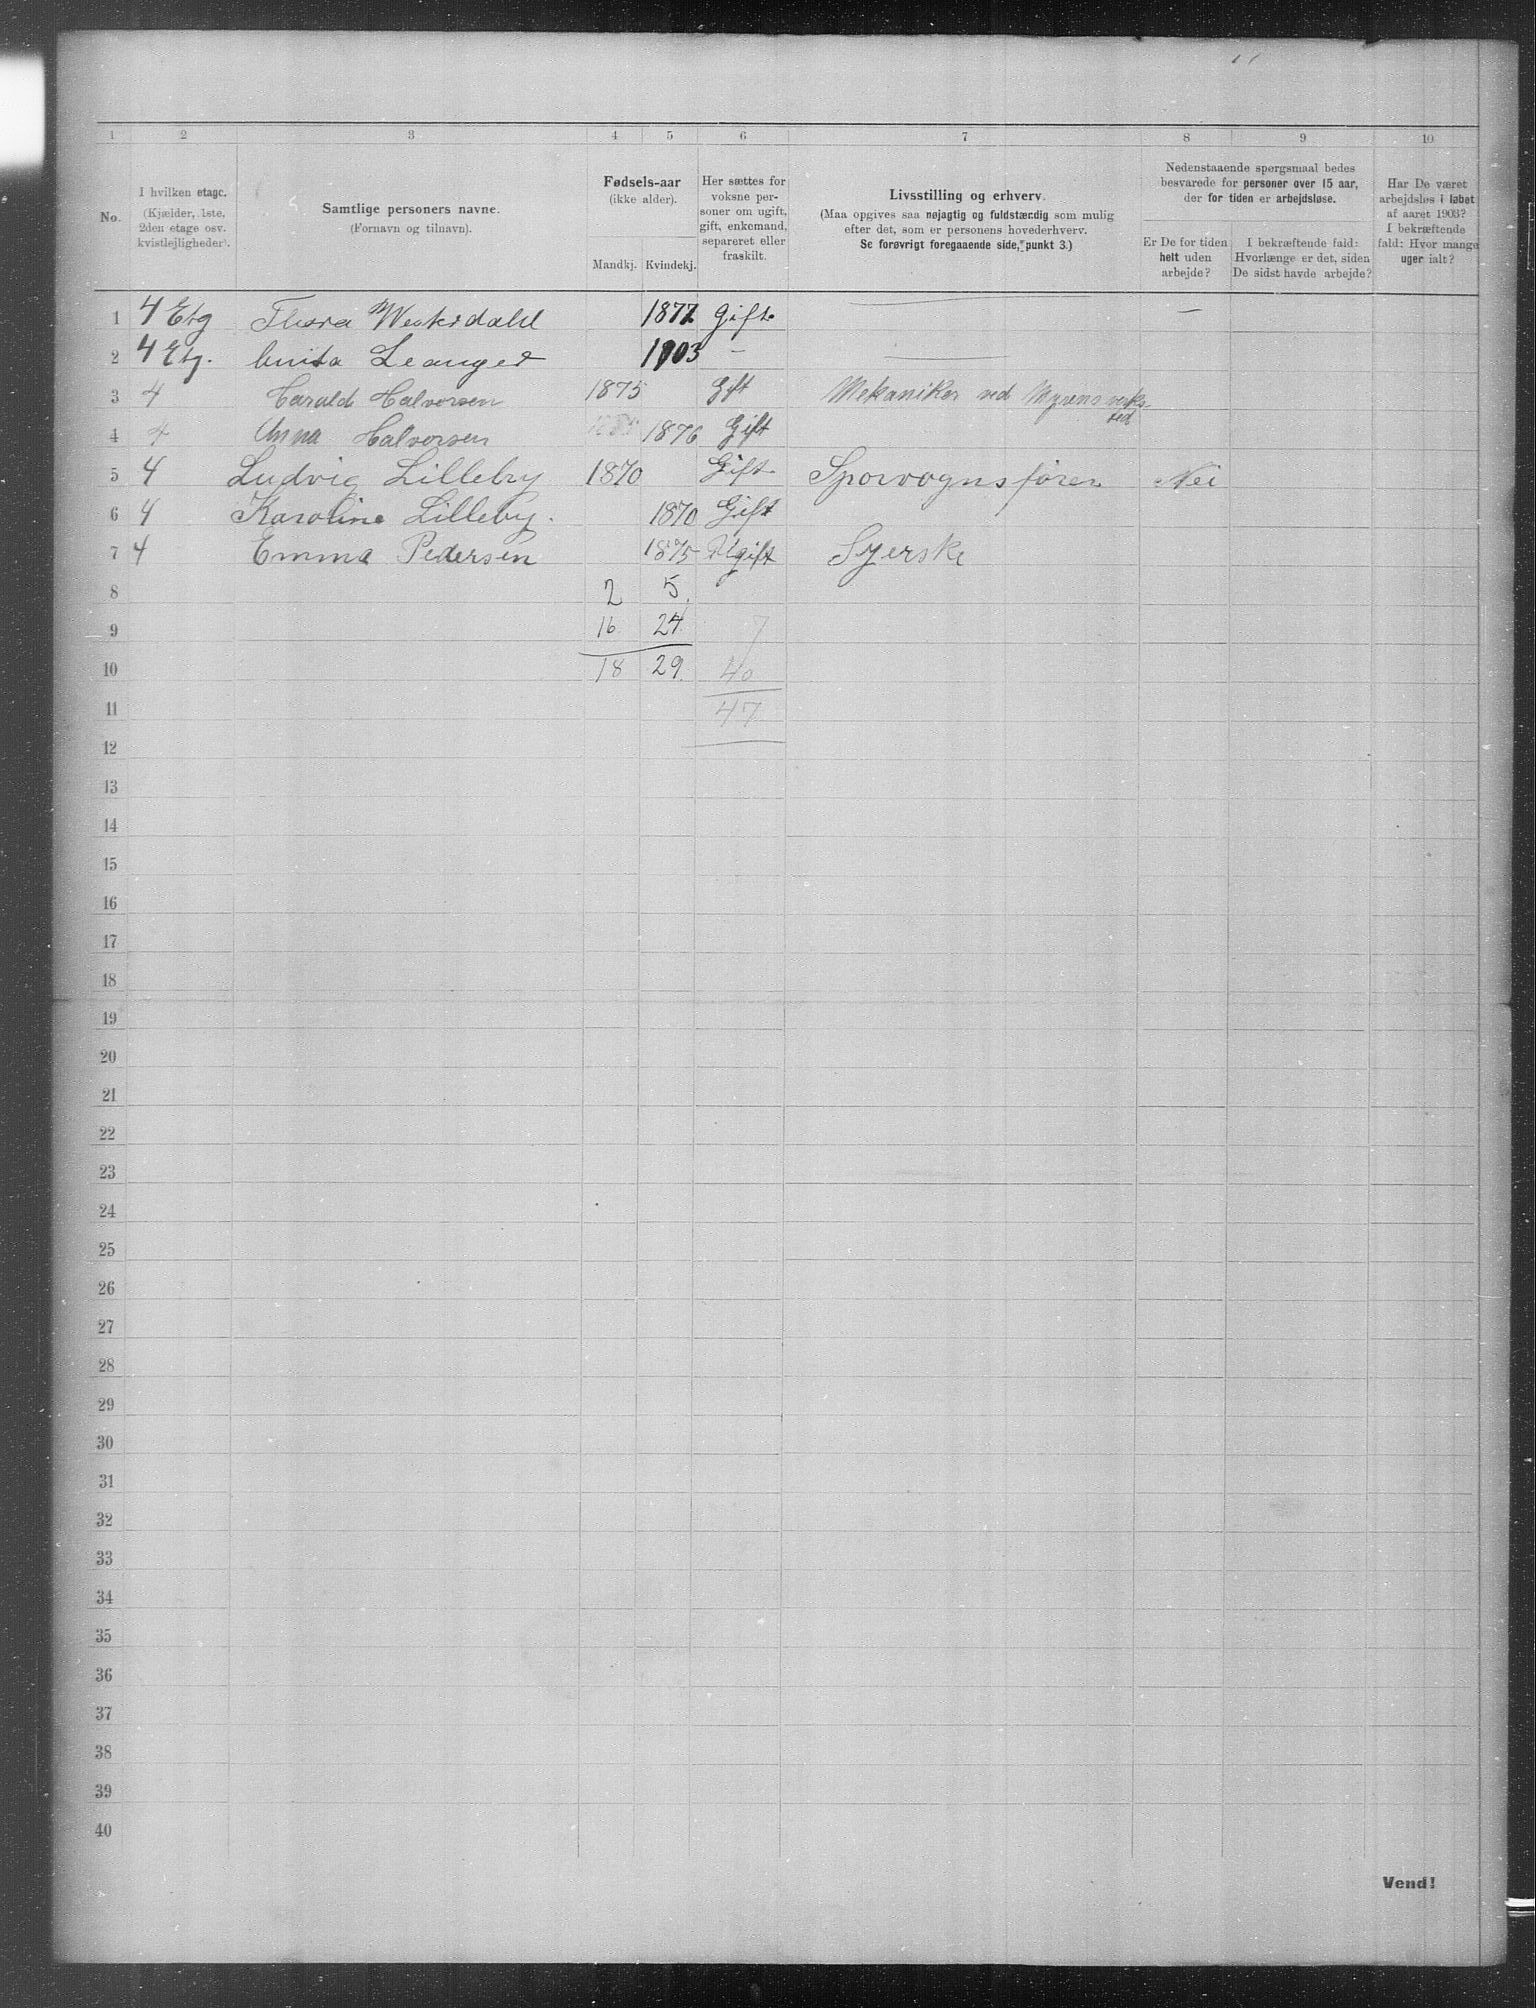 1 2 3 4 5 6 7 8 9 10
No.
I hvilken etage.
(Kjælder, 1ste,
2den etage osv.
kvistlejligheder).
Samtlige personers navne.
(Fornavn og tilnavn).
Fødsels-aar
(ikke alder).
Mandkj. Kvindekj.
Her sættes for
voksne per-
soner om ugift,
gift, enkemand,
separeret eller
fraskilt.
Livsstilling og erhverv.
(Maa opgives saa nøjagtig og fuldstændig som mulig
efter det, som er personens hovederhverv.
Se forøvrigt foregaaende side, punkt 3.)
Nedenstaaende spørgsmaal bedes
besvarede for personer over 15 aar,
der for tiden er arbejdsløse.
Er De for tiden
helt uden
arbejde?
I bekræftende fald:
Hvorlænge er det, siden
De sidst havde arbejde?
Har De været
arbejdsløs i løbet
af aaret 1903?
I bekræftende
fald: Hvor mange
uger ialt?
1 4 Etg Thora 1877 Gift —
2 4 Etg. Leanger 1903 —
3 4 Harald Halvorsen 1875 Gift Mekaniker ved Myrens verks-
ted
4 4 Anna Halvorsen 1876 Gift
5 4 Ludvig Lilleby 1870 Gift Sporvognsfører Nei
6 4 Karoline Lilleby. 1870 Gift
7 4 Emma Pedersen 1875 Ugift Syerske
8 2 5.
9 16 24 7
10 18 29. 40
11 47
12
13
14
15
16
17
18
19
20
21
22
23
24
25
26
27
28
29
30
31
32
33
34
35
36
37
38
39
40
Vend!